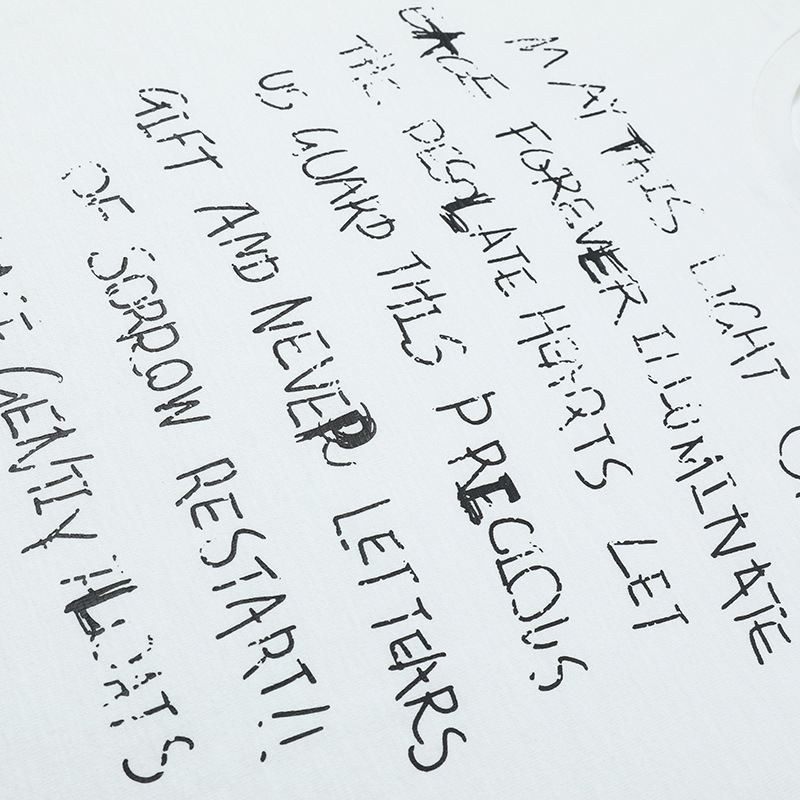 MAY THIS LIGHT
FOREVER ILLUMINATE
THE DESOLATE HEARTS LET
US GUARD THIS PRECIOUS
GIFT AND NEVER LET TEARS
OF SORROW RESTART!!
GENTLY FLOATS